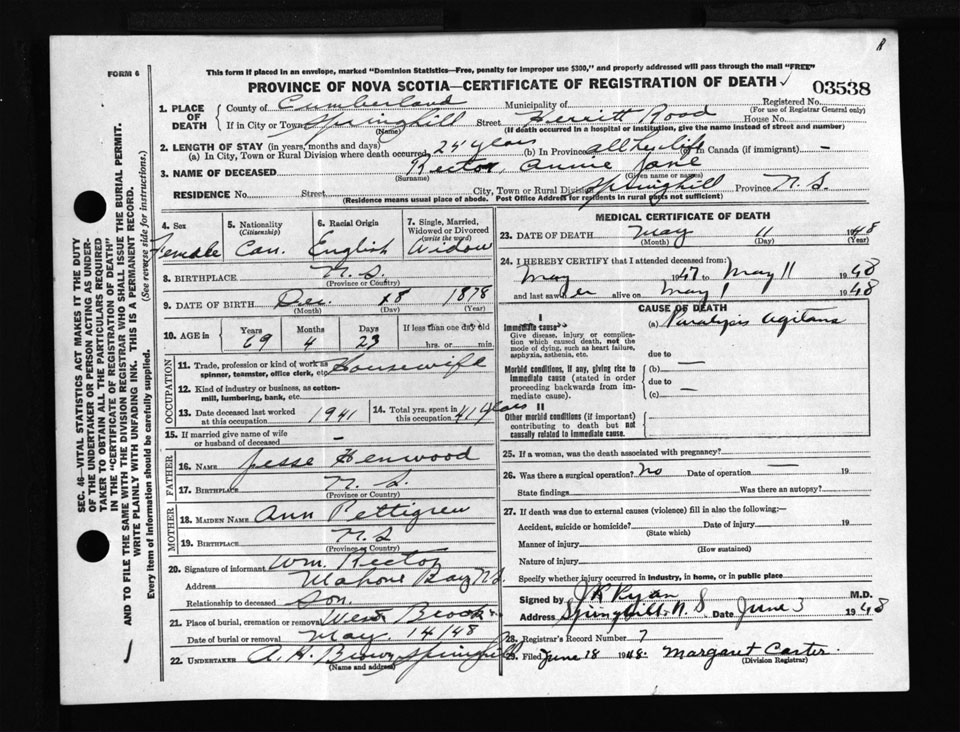 FORM 6
This form if placed in an envelope, marked "Dominion Statistics—Free, penalty for improper use $300," and properly addressed will pass through the mail "FREE"
PROVINCE OF NOVA SCOTIA—CERTIFICATE OF REGISTRATION OF DEATH
03538
1. PLACE OF DEATH
County of Cumberland Municipality of Registered No.
(For use of Registrar General only)
If in City or Town Springhill Street Herritt Road House No.
(Name) (If death occurred in a hospital or institution, give the name instead of street and number)
2. LENGTH OF STAY (in years, months and days)
(a) In City, Town or Rural Division where death occurred 25 years (b) In Province all her life In Canada (if immigrant) —
3. NAME OF DECEASED Rector, Annie Jane
(Surname) (Given name or names)
RESIDENCE No. Street City, Town or Rural Division Springhill Province N. S.
(Residence means usual place of abode. Post Office Address for residents in rural parts not sufficient)
4. Sex Female
5. Nationality (Citizenship) Can.
6. Racial Origin English
7. Single, Married, Widowed or Divorced (write the word) Widow
8. BIRTHPLACE N. S.
(Province or Country)
9. DATE OF BIRTH Dec. 18 1878
(Month) (Day) (Year)
10. AGE in Years 69 Months 4 Days 23 If less than one day old hrs. or min.
OCCUPATION
11. Trade, profession or kind of work as spinner, teamster, office clerk, etc. Housewife
12. Kind of industry or business, as cotton-mill, lumbering, bank, etc.
13. Date deceased last worked at this occupation 1941
14. Total yrs. spent in this occupation 41 years
15. If married give name of wife or husband of deceased —
FATHER
16. NAME Jesse Henwood
17. BIRTHPLACE N. S.
(Province or Country)
MOTHER
18. MAIDEN NAME Ann Pettigrew
19. BIRTHPLACE N. S
(Province or Country)
20. Signature of informant Wm. Rector
Address Mahone Bay N.S.
Relationship to deceased Son.
21. Place of burial, cremation or removal West Brook
Date of burial or removal May 14/48
22. UNDERTAKER A. H. Brown Springhill
(Name and address)
MEDICAL CERTIFICATE OF DEATH
23. DATE OF DEATH May 11 1948
(Month) (Day) (Year)
24. I HEREBY CERTIFY that I attended deceased from:
May 1947 to May 11 1948
and last saw her alive on May 1 1948
CAUSE OF DEATH
I
Immediate cause
Give disease, injury or complication which caused death, not the mode of dying, such as heart failure, asphyxia, asthenia, etc.
(a) Paralysis Agitans
due to —
Morbid conditions, if any, giving rise to immediate cause (stated in order proceeding backwards from immediate cause).
(b)
due to —
(c)
II
Other morbid conditions (if important) contributing to death but not causally related to immediate cause.
25. If a woman, was the death associated with pregnancy?
26. Was there a surgical operation? No Date of operation — 19
State findings Was there an autopsy?
27. If death was due to external causes (violence) fill in also the following:—
Accident, suicide or homicide? Date of injury 19
(State which)
Manner of injury
(How sustained)
Nature of injury
Specify whether injury occurred in industry, in home, or in public place
Signed by J R Ryan M.D.
Address Springhill N. S Date June 3 1948
28. Registrar's Record Number 7
29. Filed June 18 1948. Margaret Carter.
(Division Registrar)
SEC. 46—VITAL STATISTICS ACT MAKES IT THE DUTY
OF THE UNDERTAKER OR PERSON ACTING AS UNDER-
TAKER TO OBTAIN ALL THE PARTICULARS REQUIRED
IN THE "CERTIFICATE OF REGISTRATION OF DEATH"
AND TO FILE THE SAME WITH THE DIVISION REGISTRAR WHO SHALL ISSUE THE BURIAL PERMIT.
WRITE PLAINLY WITH UNFADING INK. THIS IS A PERMANENT RECORD.
Every item of information should be carefully supplied. (See reverse side for instructions.)